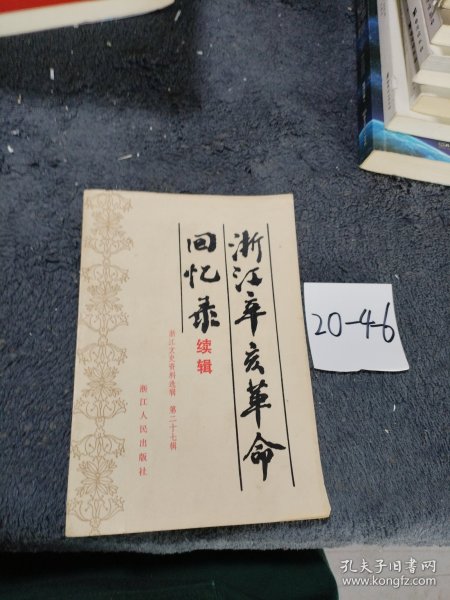 浙江辛亥革命
回忆录
续辑
浙江文史资料选辑 第二十七辑
浙江人民出版社
20-4-6
孔夫子旧书网
www.kongfz.com